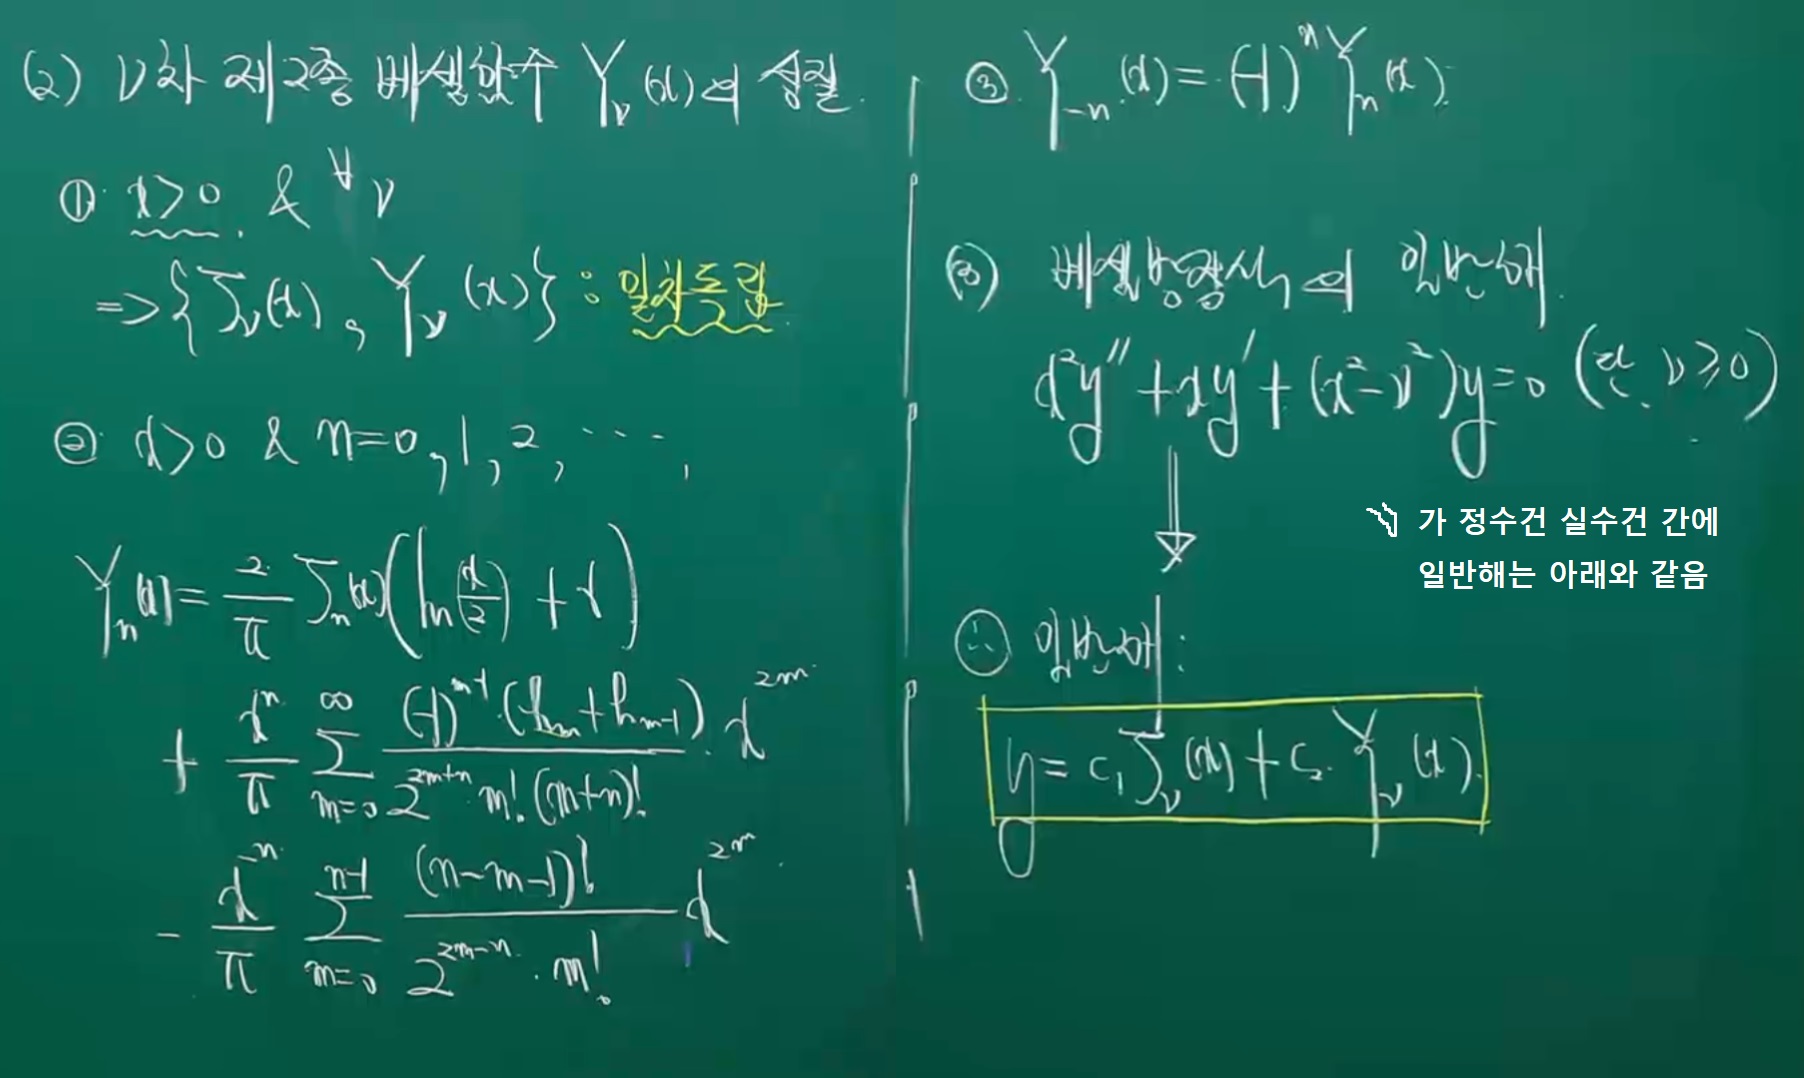 (2) ν차 제2종 베셀함수 Y_ν(x)의 성질.
① x>0. & ∀ν
=> {J_ν(x), Y_ν(x)} : 일차독립.
② x>0 & n=0,1,2, ⋯,
Y_n(x) = 2/π J_n(x)(ln(x/2) + γ)
+ x^n/π ∑_{m=0}^{∞} (-1)^{m-1}·(h_m+h_{m-1}) / 2^{2m+n}·m!(m+n)! · x^{2m}
- x^{-n}/π ∑_{m=0}^{n-1} (n-m-1)! / 2^{2m-n}·m! x^{2m}
③ Y_{-n}(x) = (-1)^n Y_n(x).
(3) 베셀방정식의 일반해.
x²y″ + xy′ + (x²-ν²)y = 0 (단, ν≥0)
ν 가 정수건 실수건 간에
일반해는 아래와 같음
∴ 일반해 :
y = c₁ J_ν(x) + c₂ Y_ν(x)